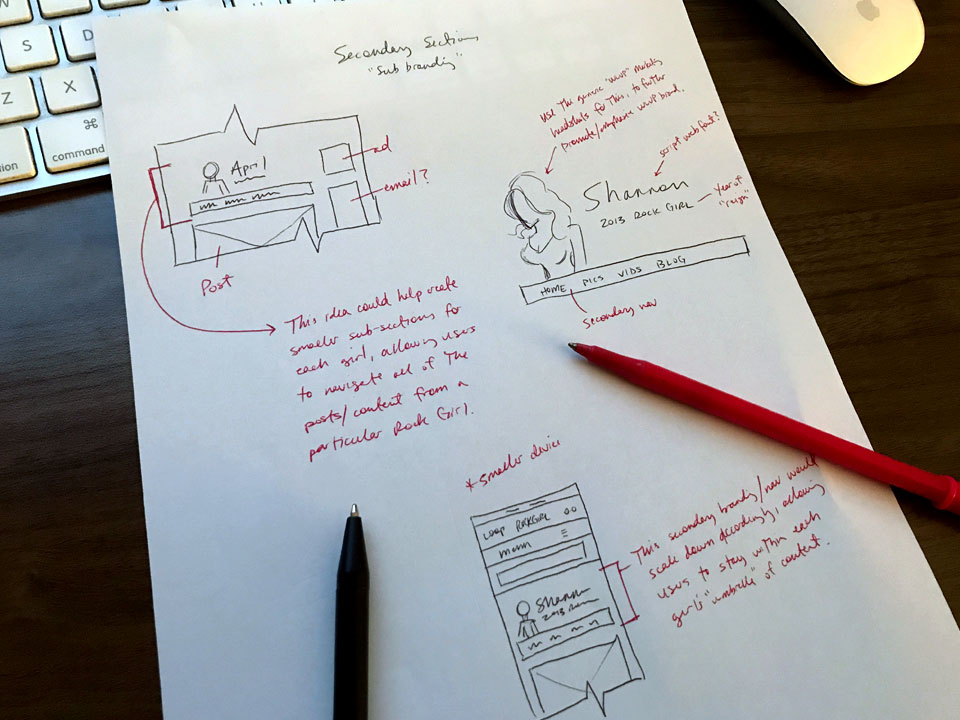 S
D
Z
X
⌘
command
Secondary Sections
"Sub branding"
April
ad
email?
Post
This idea could help create
smaller sub-sections for
each girl, allowing users
to navigate all of the
posts/content from a
particular Rock Girl.
use the generic "WWP"
headshots for this, to further
promote/emphasize WWP brand.
script webfont?
Shannon
2013 ROCK GIRL
Year of
"reign"
HOME PICS VIDS BLOG
secondary nav
* smaller device
LOOP ROCKGIRL
menu
Shannon
2013
This secondary brand/nav would
scale down accordingly, allowing
users to stay within each
girls "umbrella" of content.